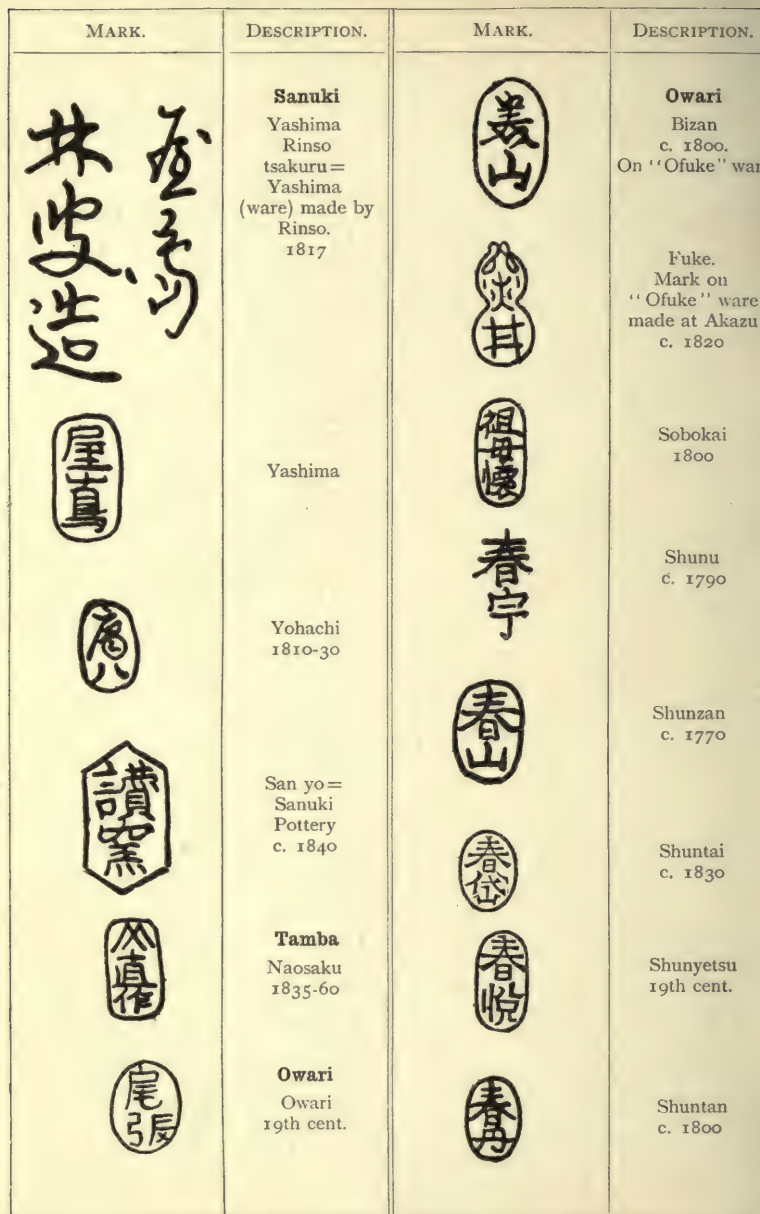 MARK.
DESCRIPTION.
屋島
林叟造
Sanuki
Yashima
Rinso
tsakuru=
Yashima
(ware) made by
Rinso.
1817
屋島
Yashima
八
Yohachi
1810-30
讃窯
San yo=
Sanuki
Pottery
c. 1840
直作
Tamba
Naosaku
1835-60
尾張
Owari
Owari
19th cent.
MARK.
DESCRIPTION.
美山
Owari
Bizan
c. 1800.
On "Ofuke" war
Fuke.
Mark on
"Ofuke" ware
made at Akazu
c. 1820
祖母懐
Sobokai
1800
春宇
Shunu
c. 1790
春山
Shunzan
c. 1770
春岱
Shuntai
c. 1830
春悦
Shunyetsu
19th cent.
春丹
Shuntan
c. 1800